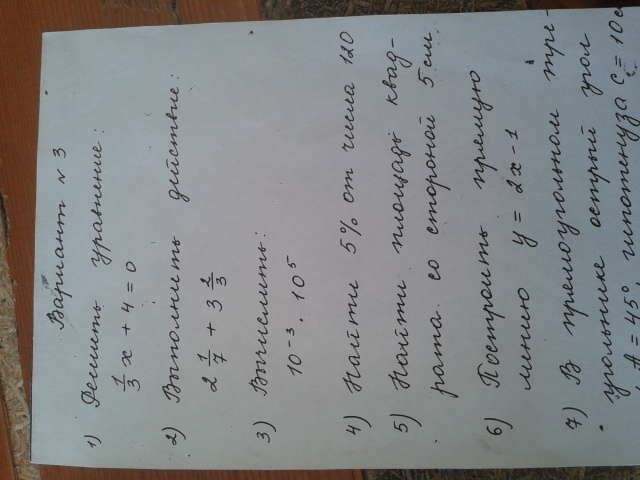 Вариант № 3
1) Решить уравнение:
1/3 x + 4 = 0
2) Выполнить действие:
2 1/7 + 3 1/3
3) Вычислить:
10⁻³ · 10⁵
4) Найти 5% от числа 120
5) Найти площадь квад-
рата со стороной 5 см.
6) Построить прямую
линию y = 2x - 1
7) В прямоугольном тре-
угольнике острый угол
A = 45°, гипотенуза c = 10